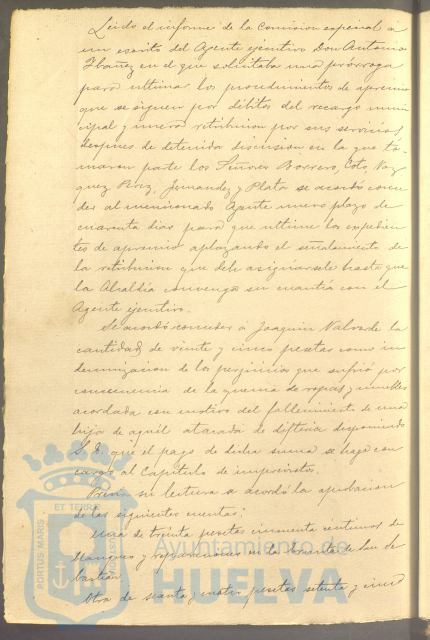 Leido el informe de la Comision especial á
un escrito del Agente ejecutivo Don Antonio
Ibañez en el que solicitaba una prórroga
para ultimar los procedimientos de apremio
que se siguen por débitos del recargo muni-
cipal y nueva retribucion por sus servicios,
despues de detenida discusion en la que to-
maron parte los Señores Borrero, Coto, Vaz-
quez Perez, Fernandez y Plata se acordó conce-
der al mencionado Agente nuevo plazo de
cuarenta dias para que ultime los expedien-
tes de apremio aplazando el señalamiento de
la retribucion que debe asignársele hasta que
la Alcaldía convenga su cuantía con el
Agente ejecutivo.
Se acordó conceder a Joaquin Valverde la
cantidad de veinte y cinco pesetas como in-
demnizacion de los perjuicios que sufrió por
consecuencia de la quema de ropas y muebles
acordada con motivo del fallecimiento de una
hija de aquel atacada de difteria disponiendo
S. E. que el pago de dicha suma se haga con
cargo al Capítulo de imprevistos.
Previa su lectura se acordó la aprobacion
de las siguientes cuentas:
Una de treinta pesetas cincuenta centimos de
y reparaciones en la de San Se-
bastian
Otra de sesenta y cuatro pesetas setenta y cinco
PORTUS MARIS ET TERRÆ
Ayuntamiento de
HUELVA